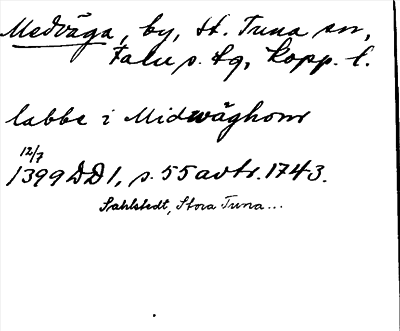 Medväga, by, St. Tuna sn,
Falu s. tg, Kopp. l.
labbe i Midwäghom
12/7
1399 DD1, s. 55 avtr. 1743.
Sahlstedt, Stora Tuna...